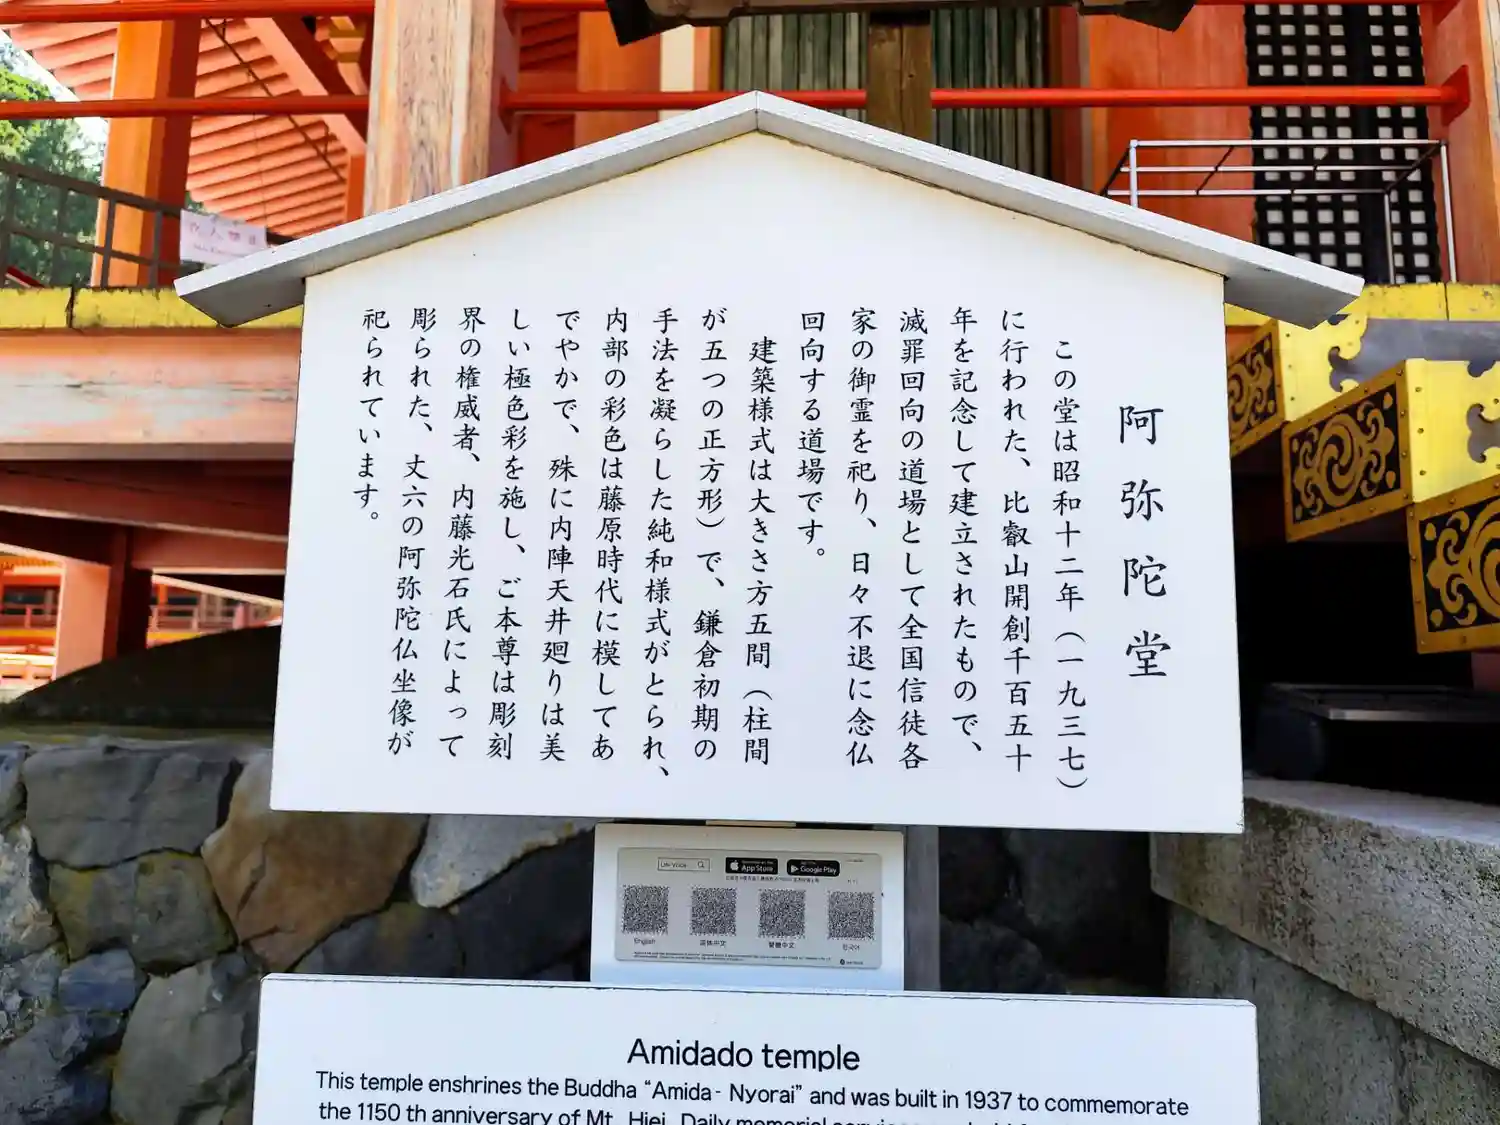 阿弥陀堂
この堂は昭和十二年（一九三七）
に行われた、比叡山開創千百五十
年を記念して建立されたもので、
滅罪回向の道場として全国信徒各
家の御霊を祀り、日々不退に念仏
回向する道場です。
建築様式は大きさ方五間（柱間
が五つの正方形）で、鎌倉初期の
手法を凝らした純和様式がとられ、
内部の彩色は藤原時代に模してあ
でやかで、殊に内陣天井廻りは美
しい極色彩を施し、ご本尊は彫刻
界の権威者、内藤光石氏によって
彫られた、丈六の阿弥陀仏坐像が
祀られています。
Live Voice
App Store
Google Play
English
简体中文
繁體中文
한국어
Amidado temple
This temple enshrines the Buddha “Amida- Nyorai” and was built in 1937 to commemorate
the 1150 th anniversary of Mt. Hiei. Daily memorial services